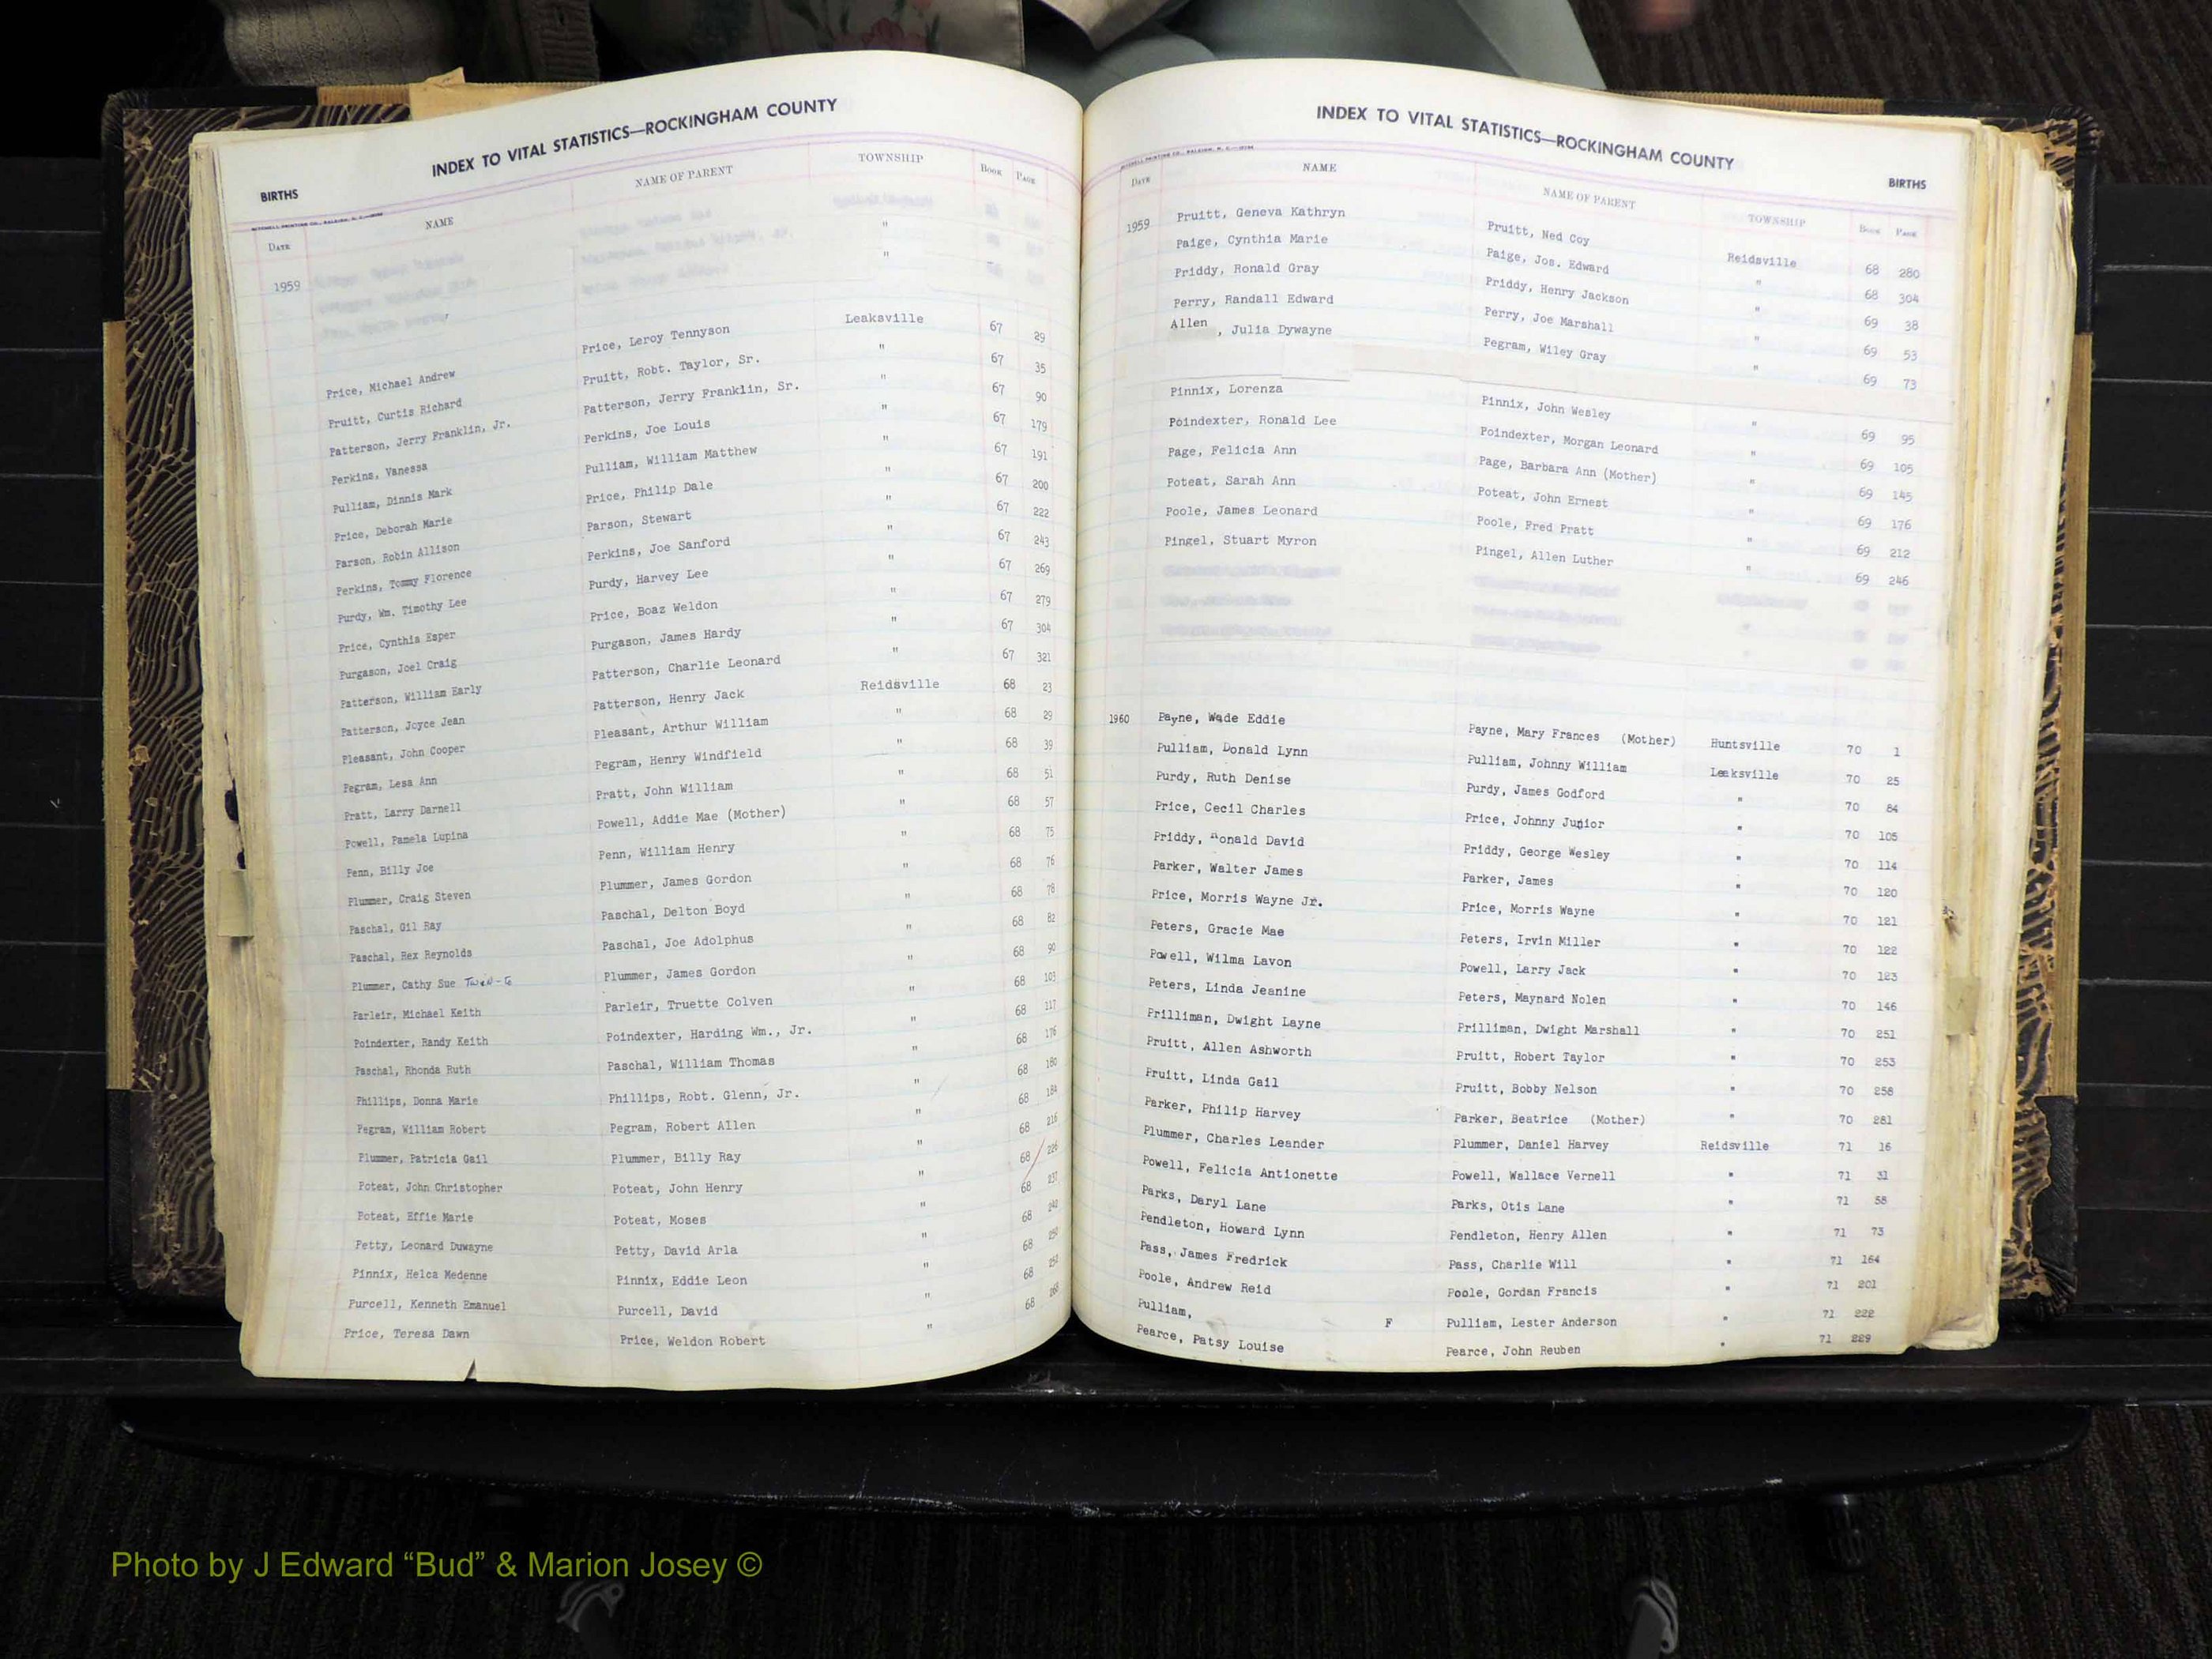 INDEX TO VITAL STATISTICS—ROCKINGHAM COUNTY
BIRTHS
MITCHELL PRINTING CO., RALEIGH, N. C.
DATE NAME NAME OF PARENT TOWNSHIP BOOK PAGE
1959
Price, Michael Andrew Price, Leroy Tennyson Leaksville 67 29
Pruitt, Curtis Richard Pruitt, Robt. Taylor, Sr. " 67 35
Patterson, Jerry Franklin, Jr. Patterson, Jerry Franklin, Sr. " 67 90
Perkins, Vanessa Perkins, Joe Louis " 67 179
Pulliam, Dinnis Mark Pulliam, William Matthew " 67 191
Price, Deborah Marie Price, Philip Dale " 67 200
Parson, Robin Allison Parson, Stewart " 67 222
Perkins, Tommy Florence Perkins, Joe Sanford " 67 243
Purdy, Wm. Timothy Lee Purdy, Harvey Lee " 67 269
Price, Cynthia Esper Price, Boaz Weldon " 67 279
Purgason, Joel Craig Purgason, James Hardy " 67 304
Patterson, William Early Patterson, Charlie Leonard " 67 321
Patterson, Joyce Jean Patterson, Henry Jack Reidsville 68 23
Pleasant, John Cooper Pleasant, Arthur William " 68 29
Pegram, Lesa Ann Pegram, Henry Windfield " 68 39
Pratt, Larry Darnell Pratt, John William " 68 51
Powell, Pamela Lupina Powell, Addie Mae (Mother) " 68 57
Penn, Billy Joe Penn, William Henry " 68 75
Plummer, Craig Steven Plummer, James Gordon " 68 76
Paschal, Gil Ray Paschal, Delton Boyd " 68 78
Paschal, Rex Reynolds Paschal, Joe Adolphus " 68 82
Plummer, Cathy Sue Plummer, James Gordon " 68 90
Parleir, Michael Keith Parleir, Truette Colven " 68 103
Poindexter, Randy Keith Poindexter, Harding Wm., Jr. " 68 117
Paschal, Rhonda Ruth Paschal, William Thomas " 68 176
Phillips, Donna Marie Phillips, Robt. Glenn, Jr. " 68 180
Pegram, William Robert Pegram, Robert Allen " 68 184
Plummer, Patricia Gail Plummer, Billy Ray " 68 216
Poteat, John Christopher Poteat, John Henry " 68 226
Poteat, Effie Marie Poteat, Moses " 68 237
Petty, Leonard Duwayne Petty, David Arla " 68 242
Pinnix, Helca Medenne Pinnix, Eddie Leon " 68 250
Purcell, Kenneth Emanuel Purcell, David " 68 252
Price, Teresa Dawn Price, Weldon Robert " 68 268
INDEX TO VITAL STATISTICS—ROCKINGHAM COUNTY
BIRTHS
MITCHELL PRINTING CO., RALEIGH, N. C.
DATE NAME NAME OF PARENT TOWNSHIP BOOK PAGE
1959 Pruitt, Geneva Kathryn Pruitt, Ned Coy Reidsville 68 280
Paige, Cynthia Marie Paige, Jos. Edward " 68 304
Priddy, Ronald Gray Priddy, Henry Jackson " 69 38
Perry, Randall Edward Perry, Joe Marshall " 69 53
Allen, Julia Dywayne Pegram, Wiley Gray " 69 73
Pinnix, Lorenza Pinnix, John Wesley " 69 95
Poindexter, Ronald Lee Poindexter, Morgan Leonard " 69 105
Page, Felicia Ann Page, Barbara Ann (Mother) " 69 145
Poteat, Sarah Ann Poteat, John Ernest " 69 176
Poole, James Leonard Poole, Fred Pratt " 69 212
Pingel, Stuart Myron Pingel, Allen Luther " 69 246
1960 Payne, Wade Eddie Payne, Mary Frances (Mother) Huntsville 70 1
Pulliam, Donald Lynn Pulliam, Johnny William Leaksville 70 25
Purdy, Ruth Denise Purdy, James Godford " 70 84
Price, Cecil Charles Price, Johnny Junior " 70 105
Priddy, Ronald David Priddy, George Wesley " 70 114
Parker, Walter James Parker, James " 70 120
Price, Morris Wayne Jr. Price, Morris Wayne " 70 121
Peters, Gracie Mae Peters, Irvin Miller " 70 122
Powell, Wilma Lavon Powell, Larry Jack " 70 123
Peters, Linda Jeanine Peters, Maynard Nolen " 70 146
Prilliman, Dwight Layne Prilliman, Dwight Marshall " 70 251
Pruitt, Allen Ashworth Pruitt, Robert Taylor " 70 253
Pruitt, Linda Gail Pruitt, Bobby Nelson " 70 258
Parker, Philip Harvey Parker, Beatrice (Mother) " 70 281
Plummer, Charles Leander Plummer, Daniel Harvey Reidsville 71 16
Powell, Felicia Antionette Powell, Wallace Vernell " 71 31
Parks, Daryl Lane Parks, Otis Lane " 71 58
Pendleton, Howard Lynn Pendleton, Henry Allen " 71 73
Pass, James Fredrick Pass, Charlie Will " 71 164
Poole, Andrew Reid Poole, Gordan Francis " 71 201
Pulliam, F Pulliam, Lester Anderson " 71 222
Pearce, Patsy Louise Pearce, John Reuben " 71 229
Photo by J Edward “Bud” & Marion Josey ©